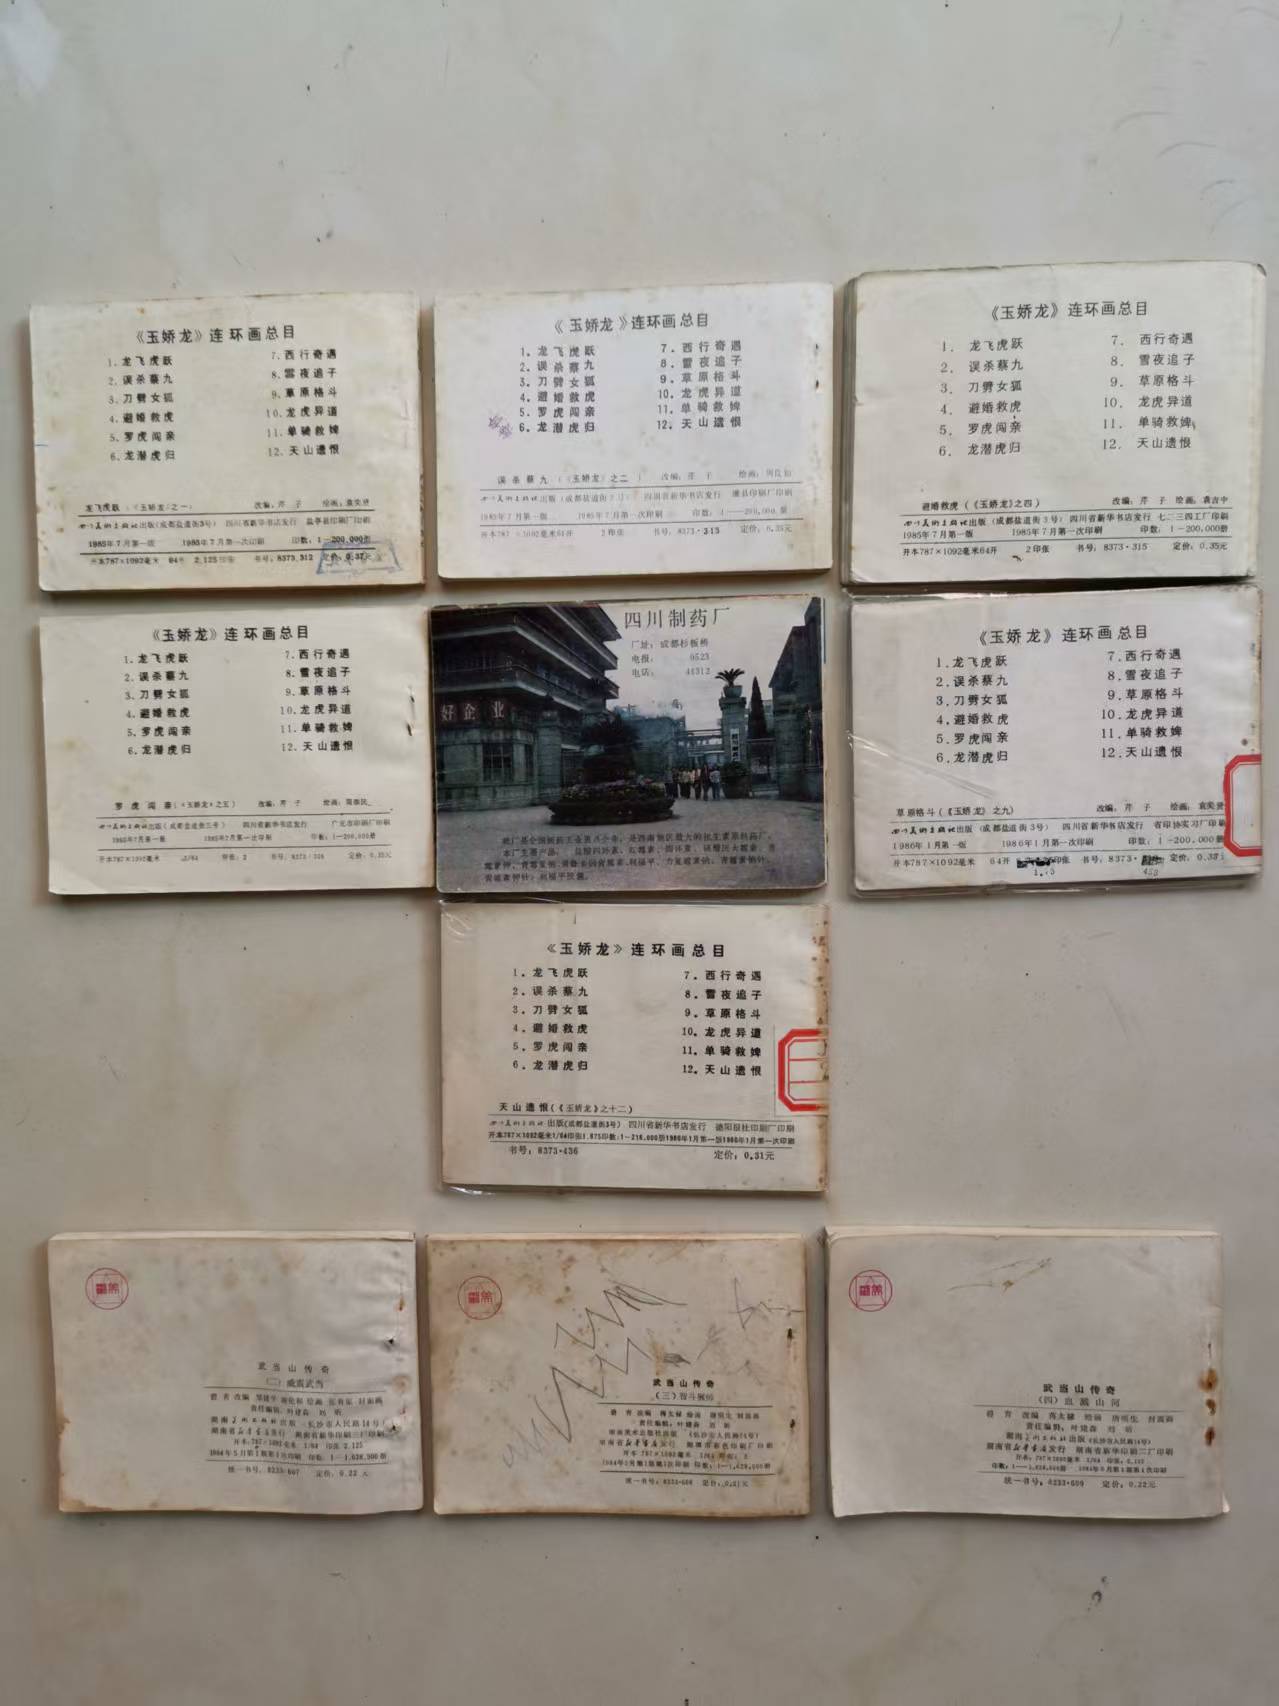 《玉娇龙》连环画总目
1. 龙飞虎跃
2. 误杀蔡九
3. 刀劈女狐
4. 避婚救虎
5. 罗虎闯亲
6. 龙潜虎归
7. 西行奇遇
8. 雪夜追子
9. 草原格斗
10. 龙虎异道
11. 单骑救婢
12. 天山遗恨
龙飞虎跃(《玉娇龙》之一) 改编：芹子 绘画：袁奕贤
四川美术出版社出版(成都盐道街3号) 四川省新华书店发行 盐亭县印刷厂印刷
1985年7月第一版 1985年7月第一次印刷 印数：1—200,000册
开本787×1092毫米 64开 2.125印张 书号：8373.312 定价：0.37元
《玉娇龙》连环画总目
1. 龙飞虎跃
2. 误杀蔡九
3. 刀劈女狐
4. 避婚救虎
5. 罗虎闯亲
6. 龙潜虎归
7. 西行奇遇
8. 雪夜追子
9. 草原格斗
10. 龙虎异道
11. 单骑救婢
12. 天山遗恨
误杀蔡九(《玉娇龙》之二) 改编：芹子 绘画：
四川美术出版社出版(成都盐道街3号) 四川省新华书店发行 印刷厂印刷
1985年7月第一版 1985年7月第一次印 印数：1—200,000册
开本787×1092毫米64开 2印张 书号：8373·313 定价：0.35元
《玉娇龙》连环画总目
1. 龙飞虎跃
2. 误杀蔡九
3. 刀劈女狐
4. 避婚救虎
5. 罗虎闯亲
6. 龙潜虎归
7. 西行奇遇
8. 雪夜追子
9. 草原格斗
10. 龙虎异道
11. 单骑救婢
12. 天山遗恨
避婚救虎(《玉娇龙》之四) 改编：芹子 绘画：袁吉中
四川美术出版社出版(成都盐道街3号) 四川省新华书店发行 七二三四工厂印刷
1985年7月第一版 1985年7月第一次印刷 印数：1—200,000册
开本787×1092毫米64开 2印张 书号：8373·315 定价：0.35元
《玉娇龙》连环画总目
1. 龙飞虎跃
2. 误杀蔡九
3. 刀劈女狐
4. 避婚救虎
5. 罗虎闯亲
6. 龙潜虎归
7. 西行奇遇
8. 雪夜追子
9. 草原格斗
10. 龙虎异道
11. 单骑救婢
12. 天山遗恨
罗虎闯亲(《玉娇龙》之五) 改编：芹子 绘画：
四川美术出版社出版(成都盐道街三号) 四川省新华书店发行 广元市印刷厂印刷
1985年7月第一版 1985年7月第一次印刷 印数：1—200,000册
开本787×1092毫米 1/64 印张：2 书号：8373·316 定价：0.35元
四川制药厂
厂址：成都杉板桥
电报：0523
电话：44312
好企业
《玉娇龙》连环画总目
1. 龙飞虎跃
2. 误杀蔡九
3. 刀劈女狐
4. 避婚救虎
5. 罗虎闯亲
6. 龙潜虎归
7. 西行奇遇
8. 雪夜追子
9. 草原格斗
10. 龙虎异道
11. 单骑救婢
12. 天山遗恨
草原格斗(《玉娇龙》之九) 改编：芹子 绘画：袁奕贤
四川美术出版社出版(成都盐道街3号) 四川省新华书店发行 省印协实习厂印刷
1986年1月第一版 1986年1月第一次印刷 印数：1—200,000册
开本787×1092毫米 64开 印张 书号：8373· 定价：0.33元
1.75 433
《玉娇龙》连环画总目
1. 龙飞虎跃
2. 误杀蔡九
3. 刀劈女狐
4. 避婚救虎
5. 罗虎闯亲
6. 龙潜虎归
7. 西行奇遇
8. 雪夜追子
9. 草原格斗
10. 龙虎异道
11. 单骑救婢
12. 天山遗恨
天山遗恨(《玉娇龙》之十二)
四川美术出版社 出版(成都盐道街3号) 四川省新华书店发行 德阳报社印刷厂印刷
开本787×1092毫米1/64印张1.875印数：1—216,000册1986年1月第一版1986年1月第一次印刷
书号：8373·436 定价：0.31元
武当山传奇
(二)威震武当
责任编辑：叶建森 刘昕
湖南美术出版社出版(长沙市人民路14号)
湖南省新华书店发行 湖南省新华印刷二厂印刷
开本：787×1092毫米 1/64 印张 2.125
1984年5月第1版第1次印刷 印数：1—1,638,900册
统一书号：8233·607 定价：0.22元
武当山传奇
(三)智斗
责任编辑：叶建森 刘昕
湖南美术出版社出版 (长沙市人民路14号)
湖南省新华书店发行 湘潭市彩色印刷厂印刷
开本：787×1092毫米 1/64 印张：2
统一书号：8233·608 定价：0.21元
武当山传奇
(四)血溅山河
责任编辑：叶建森 刘昕
湖南美术出版社出版 (长沙市人民路14号)
湖南省新华书店发行 湖南省新华印刷二厂印刷
开本：787×1092毫米 1/64 印张：2.125
统一书号：8233·609 定价：0.22元